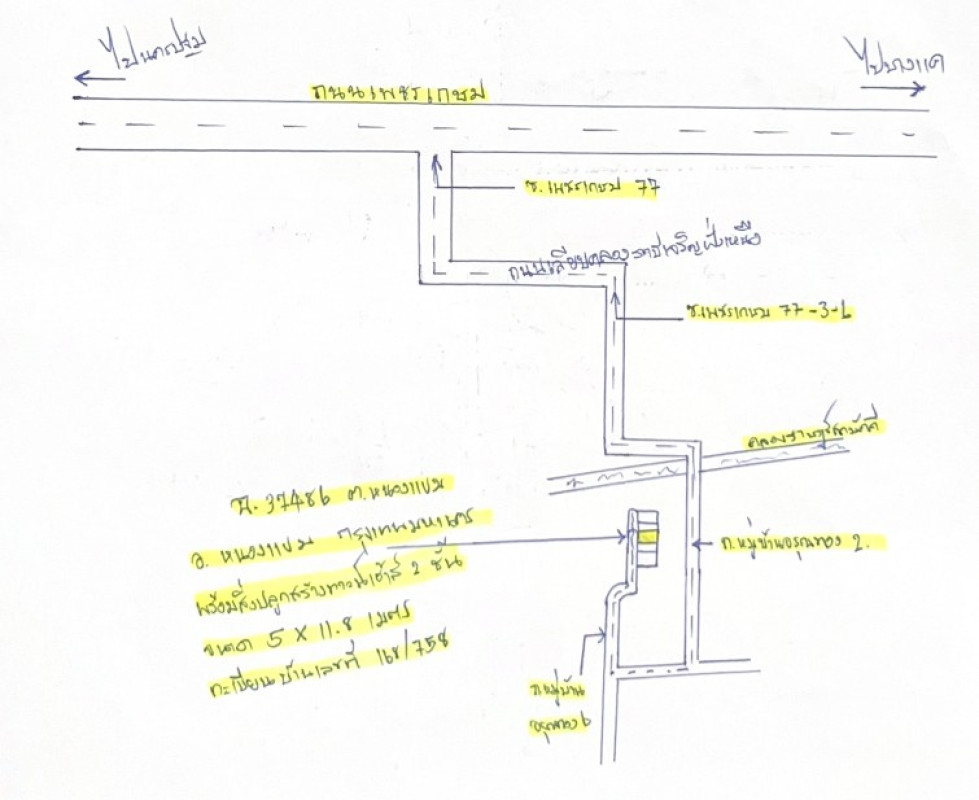 ไปนครปฐม
ไปบางแค
ถนนเพชรเกษม
ซ.เพชรเกษม 77
ถนนเลียบคลองราชเจริญฝั่งเหนือ
ซ.เพชรเกษม 77-3-6
คลองราษฎร์สามัคคี
ฉ. 37486 ต.หนองแขม
อ. หนองแขม กรุงเทพมหานคร
พร้อมสิ่งปลูกสร้างทาวน์เฮ้าส์ 2 ชั้น
ขนาด 5 X 11.8 เมตร
ทะเบียนบ้านเลขที่ 168/758
ถ.หมู่บ้านอรุณทอง 2.
ถ.หมู่บ้าน
อรุณทอง 6